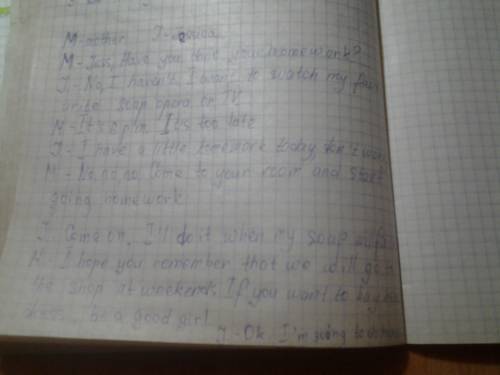 M-mother J-Jessica
M-Jess, Have you done your homework?
J-No, I haven't. I want to watch my fav
urite soap opera on TV
M-It's 8 p.m. It's too late
J-I have a little homework today, don't worry
M-No no no. Come to your room and start
going homework
J. Come on, I'll do it when my soap
M. I hope you remember that we will go
the shop at weekends. If you want to buy
dress, be a good girl
J.-Ok. I'm going to